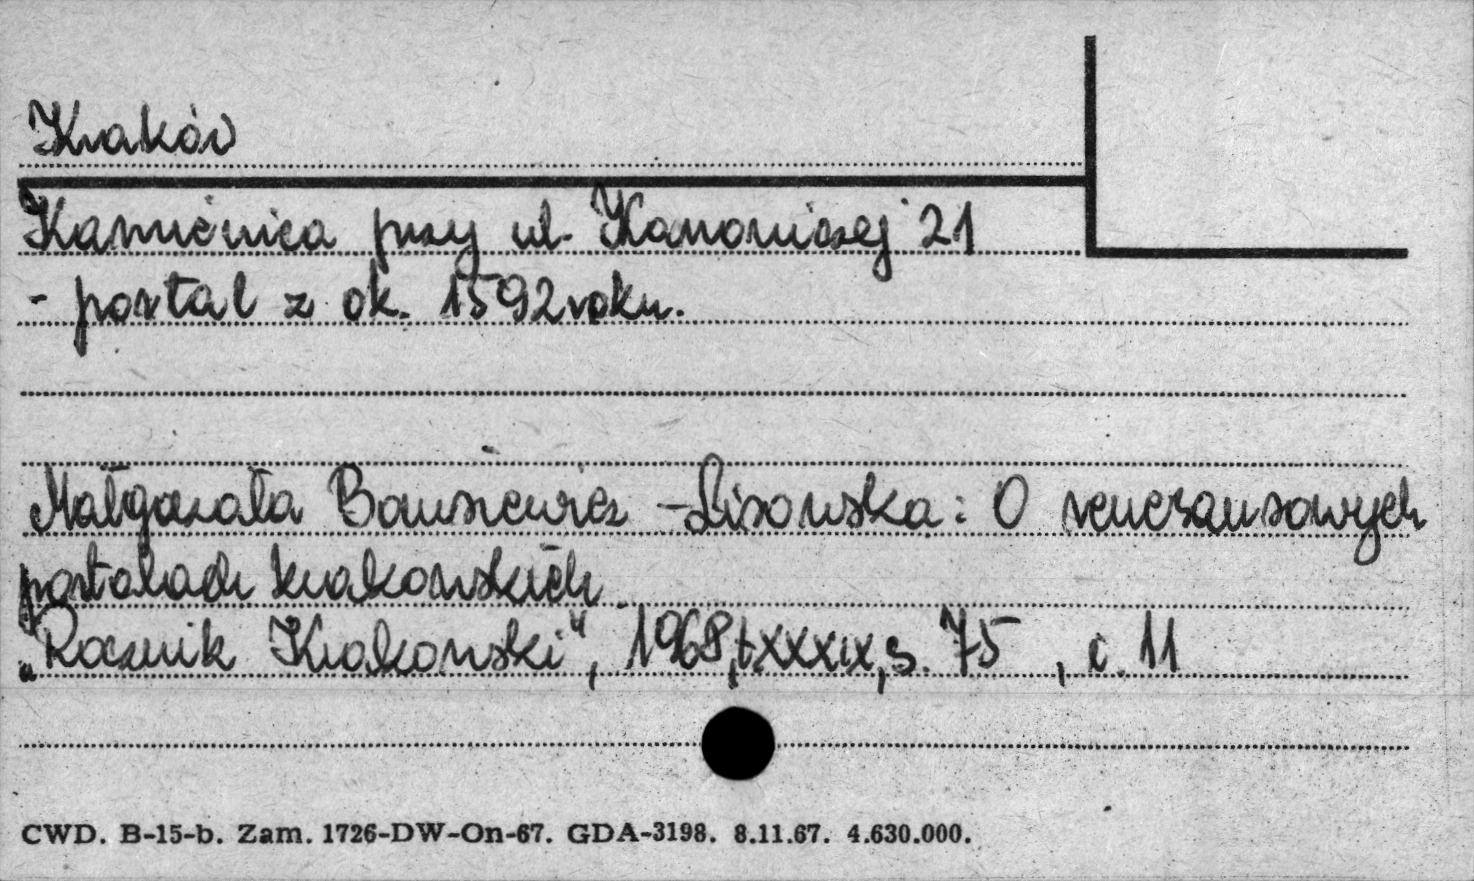 Kraków
Kamienica przy ul. Kanoniczej 21
- portal z ok. 1592 roku.
Małgorzata Borusiewicz - Lisowska: O renesansowych
portalach krakowskich
„Rocznik Krakowski", 1968, t XXXIX, s. 75 , i. 11
CWD. B-15-b. Zam. 1726-DW-On-67. GDA-3198. 8.11.67. 4.630.000.